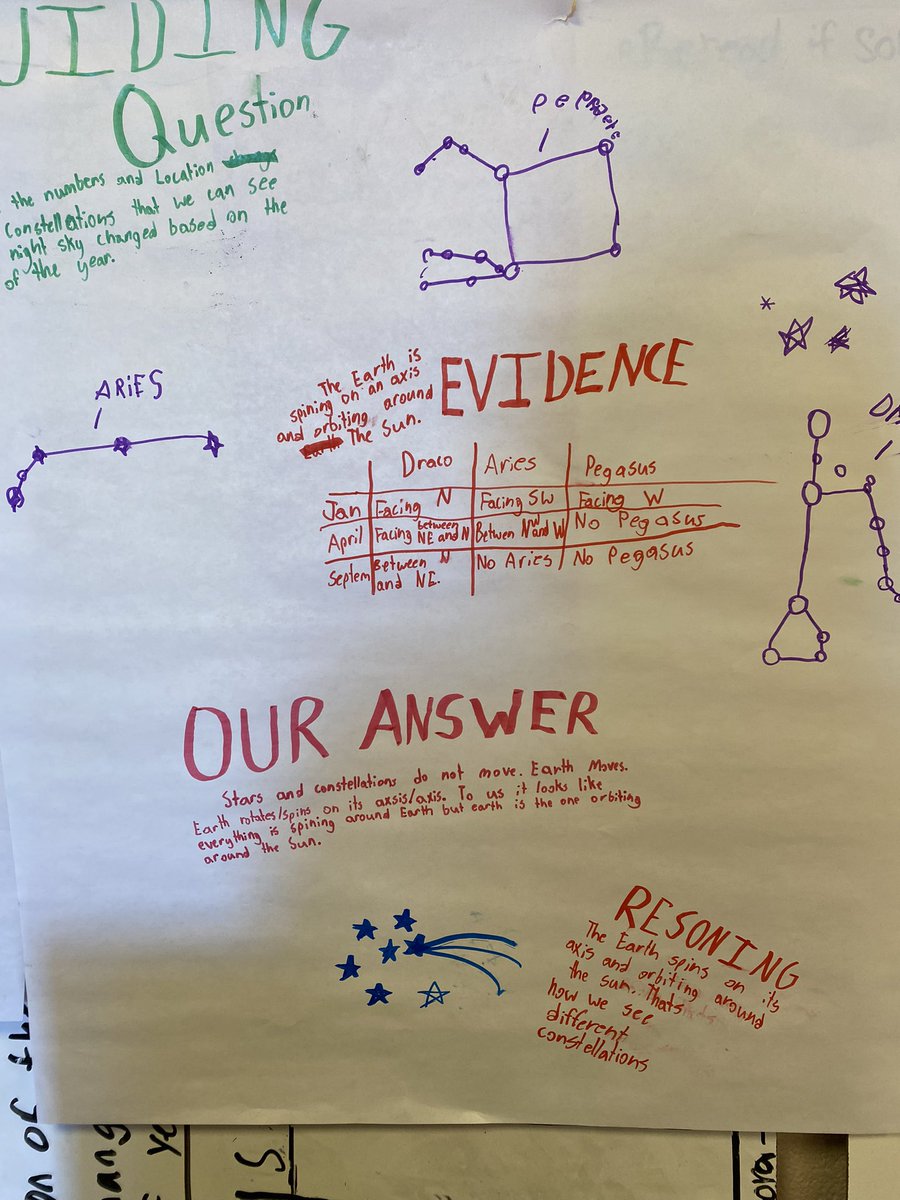 UIDING
Question
the numbers and Location
Constellations that we can see
night sky changed based on the
of the year.
ARiES
The Earth is
spining on an axis
and orbiting around
Earth The Sun.
EVIDENCE
Draco Aries Pegasus
Jan Facing N Facing SW Facing W
April Facing between NE and N Betwen NW and W No Pegasus
Septem Between N and NE. No Aries No Pegasus
OUR ANSWER
Stars and constellations do not move. Earth Moves.
Earth rotates/spins on its axsis/axis. To us it looks like
everything is spining around Earth but earth is the one orbiting
around the Sun.
RESONING
The Earth spins on its
axis and orbiting around
the sun. Thats
how we see
different
constellations